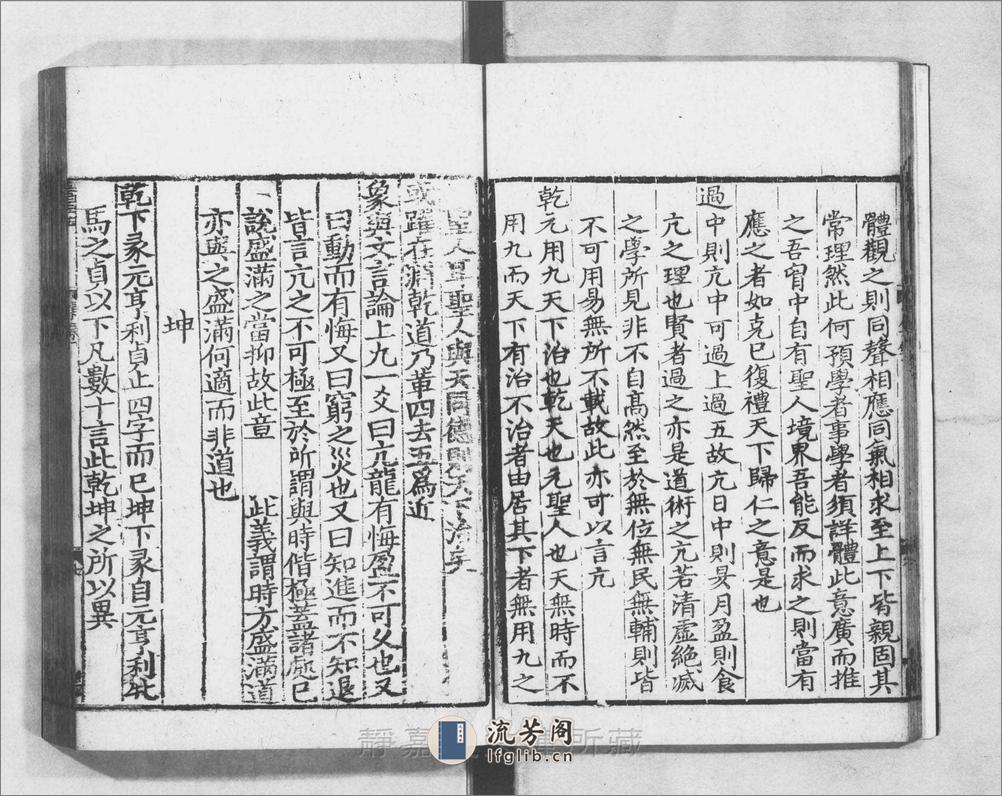 體觀之則同聲相應同氣相求至上下皆親固其
常理然此何預學者事學者須詳體此意廣而推
之吾胷中自有聖人境界吾能反而求之則當有
應之者如克已復禮天下歸仁之意是也
過中則亢中可過上過五故亢日中則昃月盈則食
亢之理也賢者過之亦是道術之亢若清虛絶滅
之學所見非不自髙然至於無位無民無輔則皆
不可用易無所不載故此亦可以言亢
乾元用九天下治也乾天也元聖人也天無時而不
用九而天下有治不治者由居其下者無用九之
聖人耳聖人與天同德則天下治矣
或躍在淵乾道乃革四去五爲近
象與文言論上九一爻曰亢龍有悔盈不可久也又
曰動而有悔又曰窮之災也又曰知進而不知退
皆言亢之不可極至於所謂與時偕極蓋諸處已
說盛滿之當抑故此章 此義謂時方盛滿道
亦與之盛滿何適而非道也
坤
乾下彖元亨利貞止四字而已坤下彖自元亨利牝
馬之貞以下凡數十言此乾坤之所以異
流芳阁
lfglib.cn
靜嘉 所藏